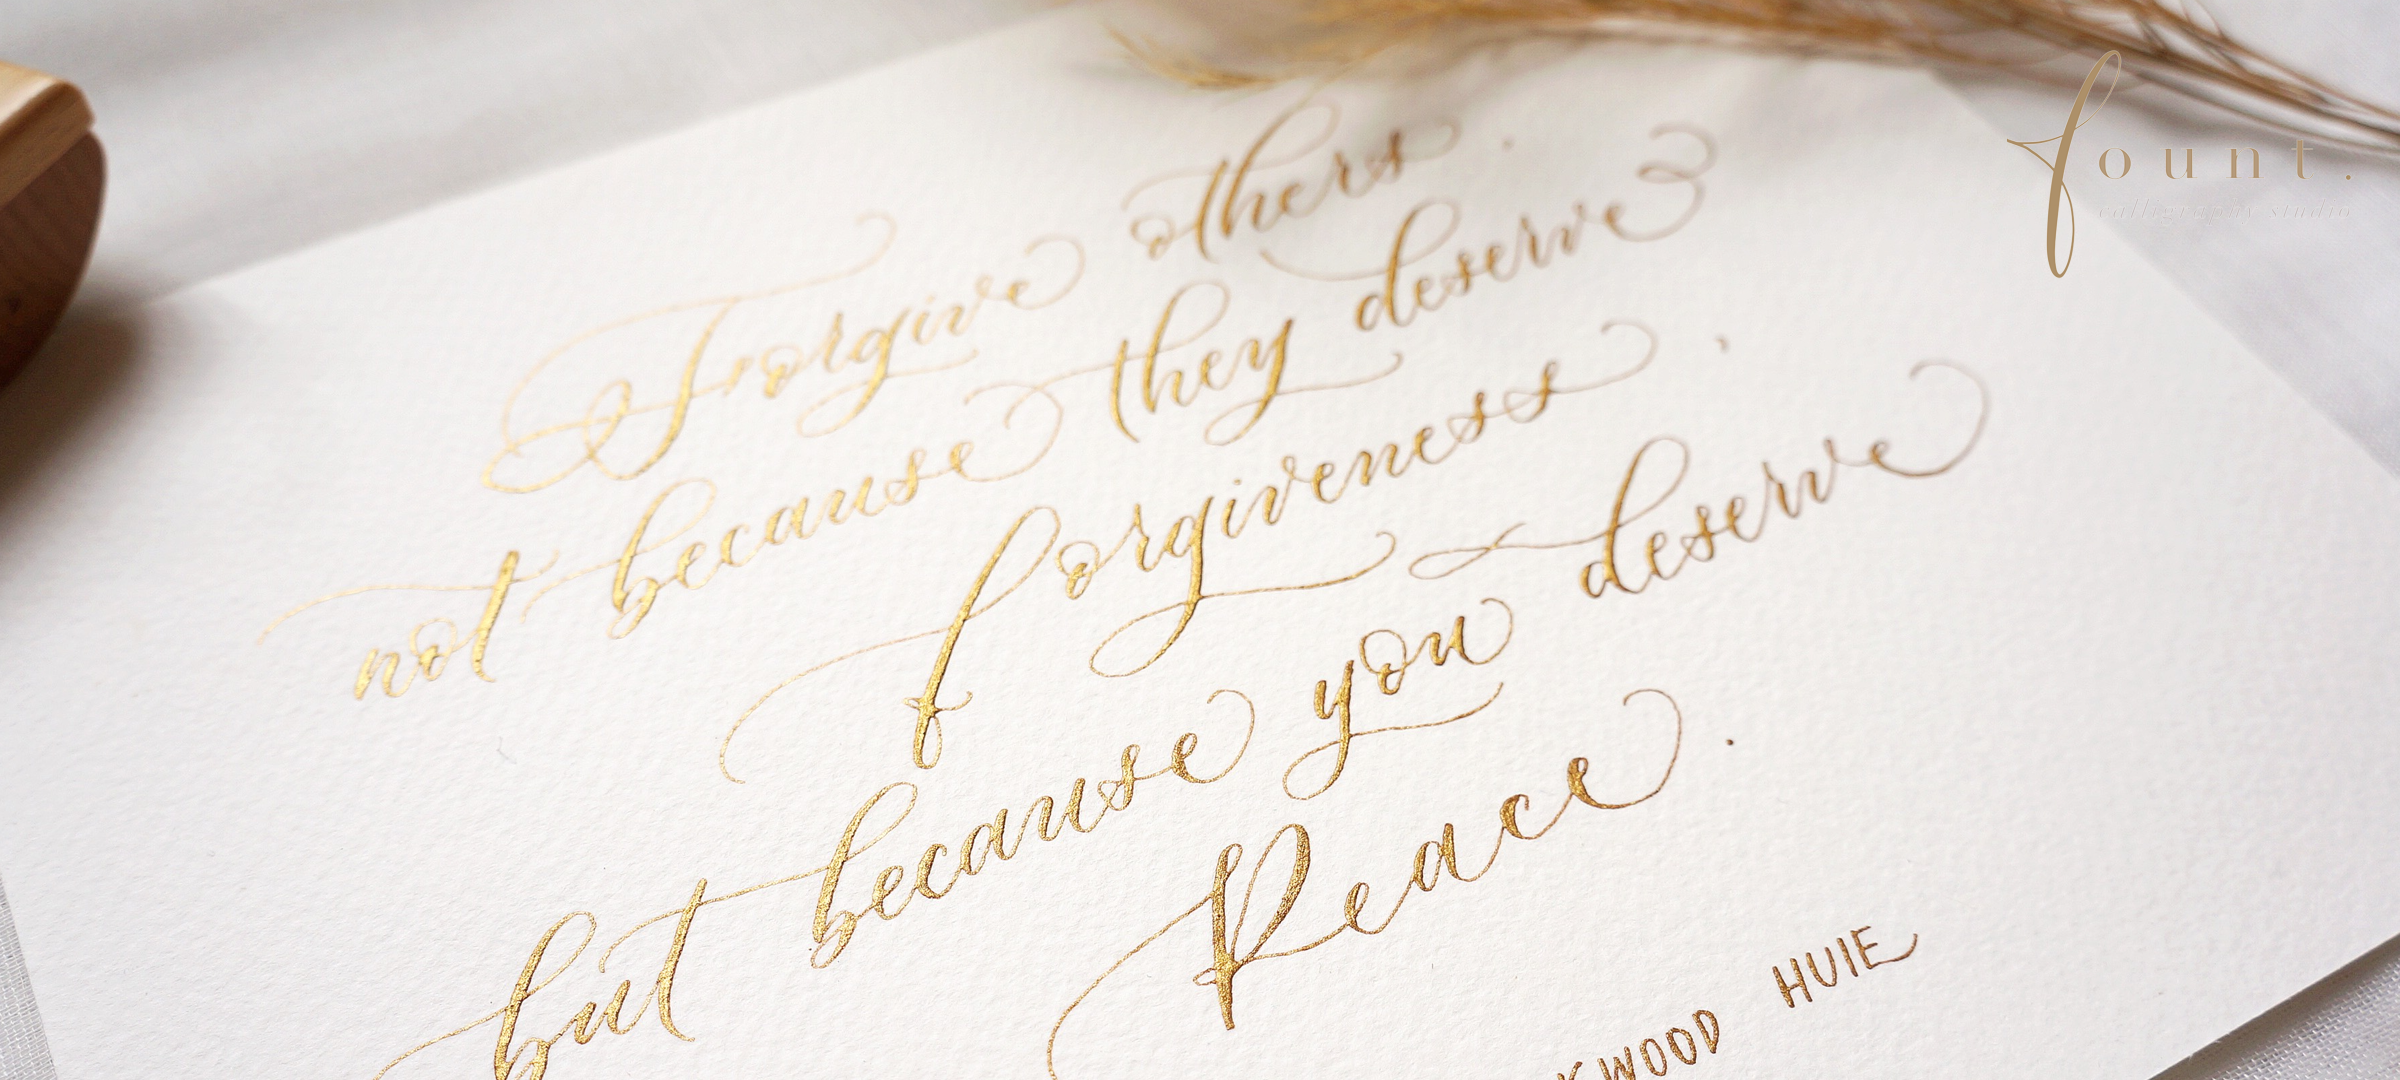 Forgive others.
not because they deserve
forgiveness,
but because you deserve
Peace.
KWOOD HUIE
fount.
calligraphy studio